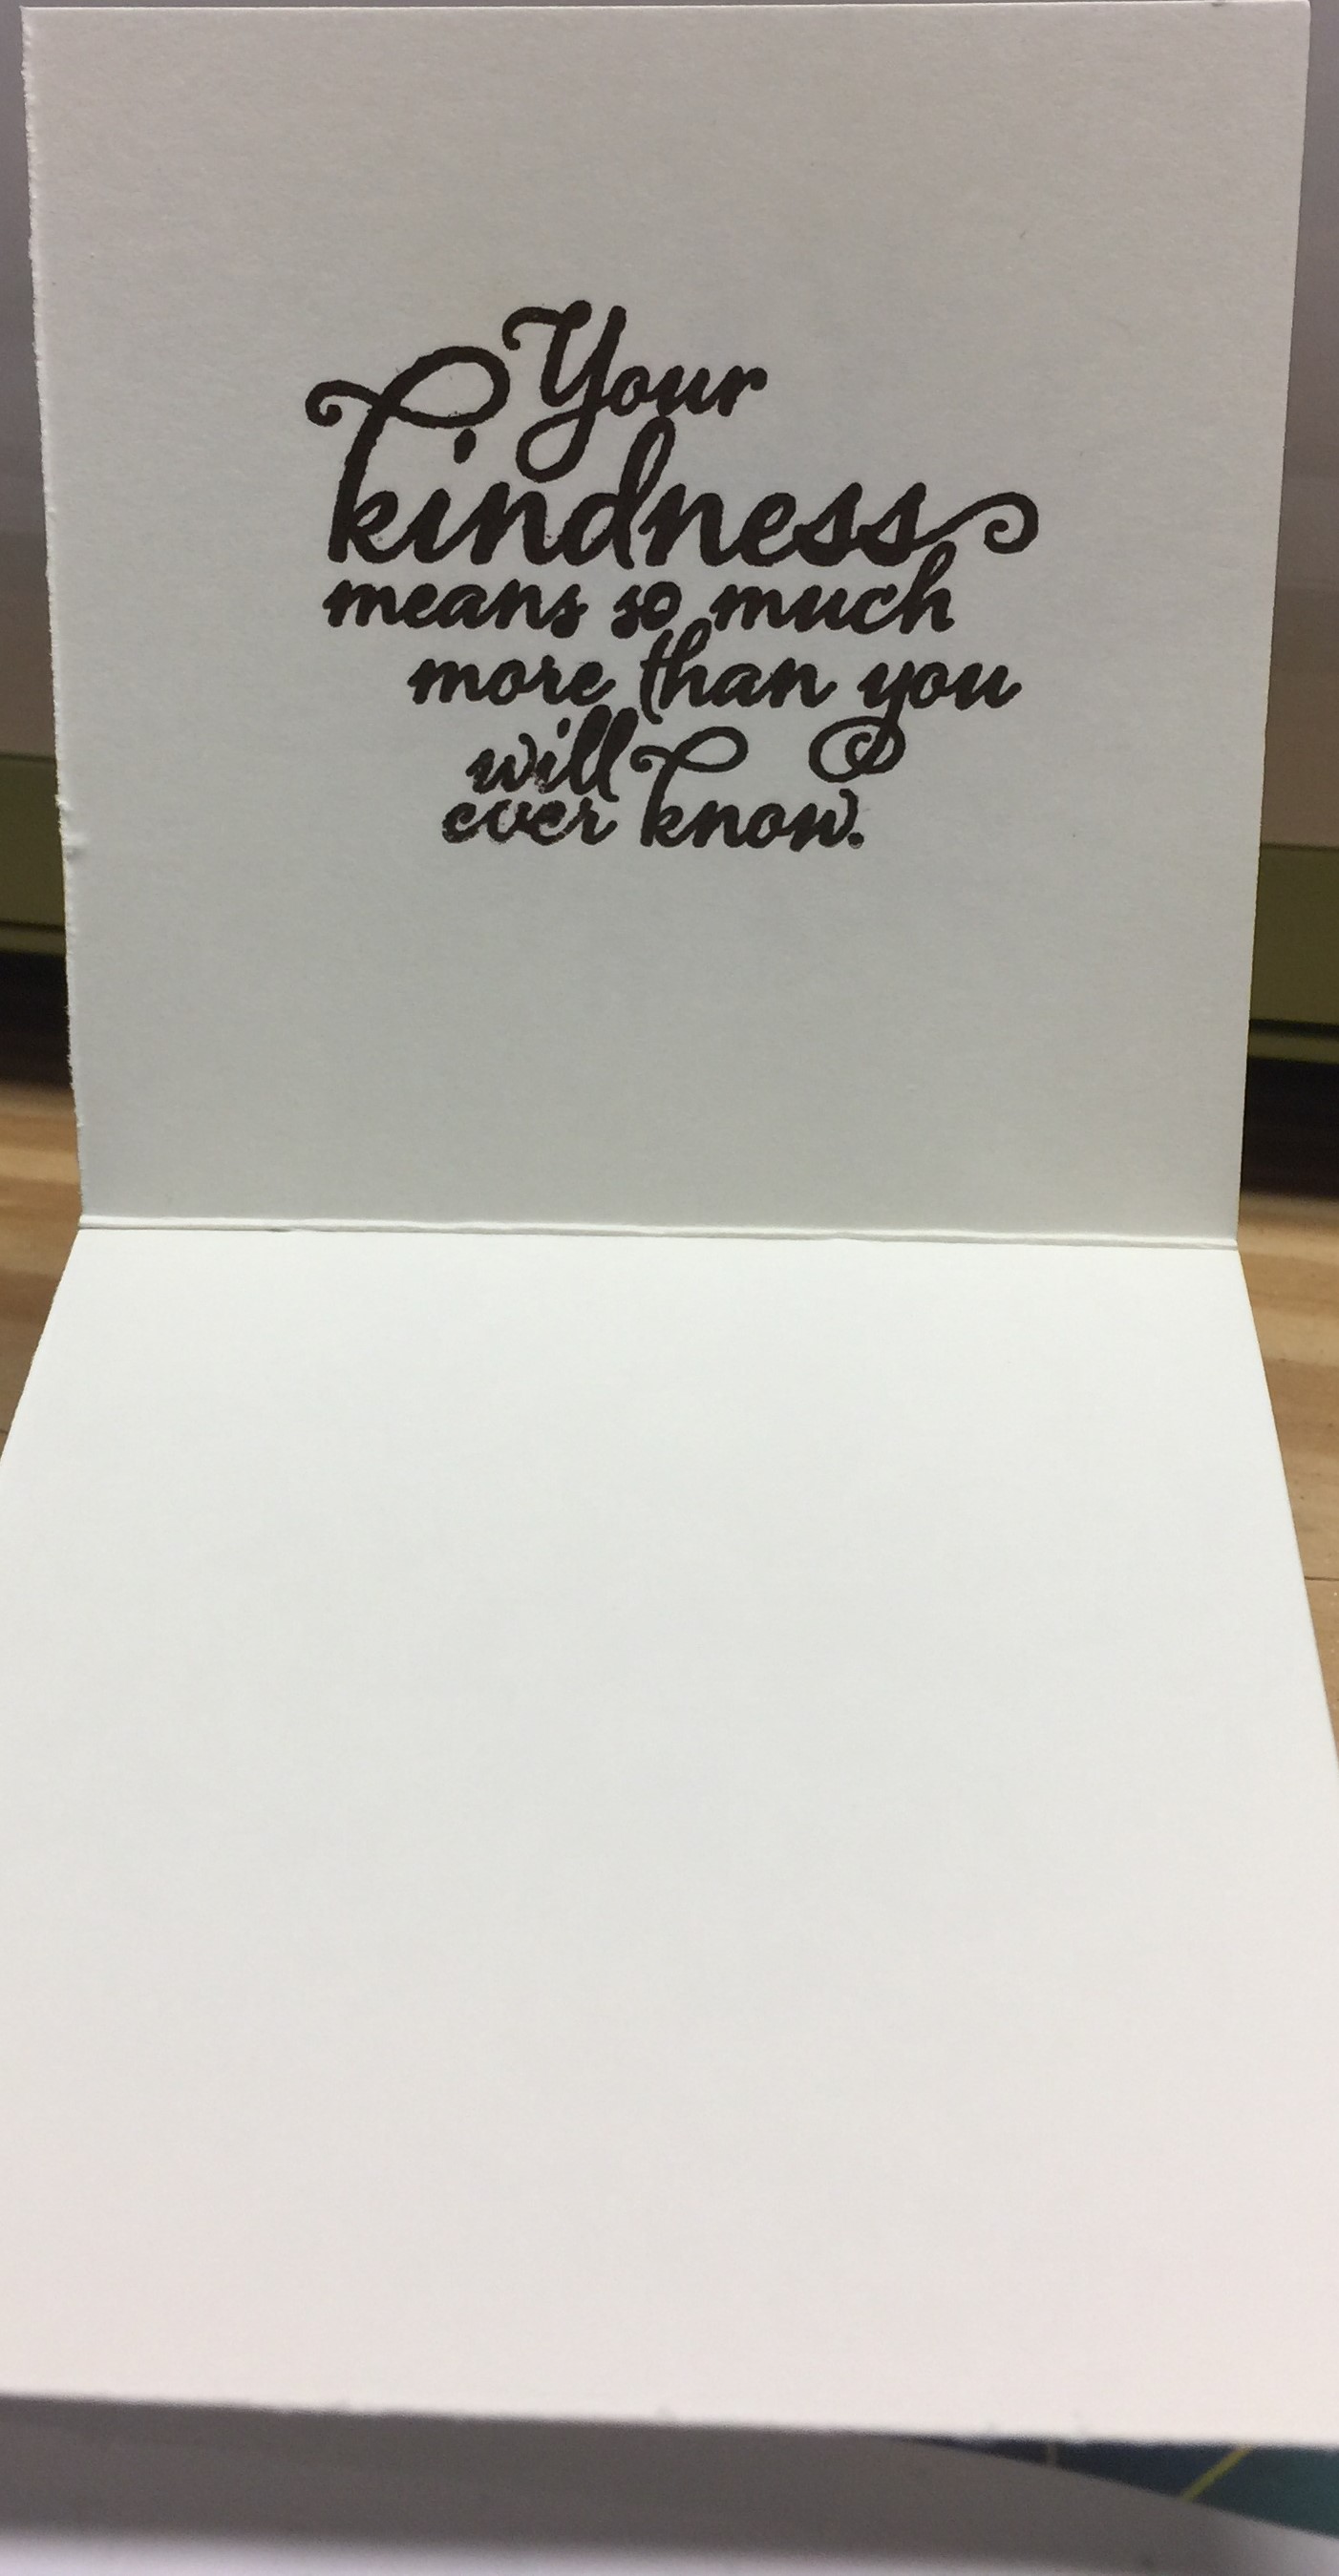 Your
kindness
means so much
more than you
will
ever know.